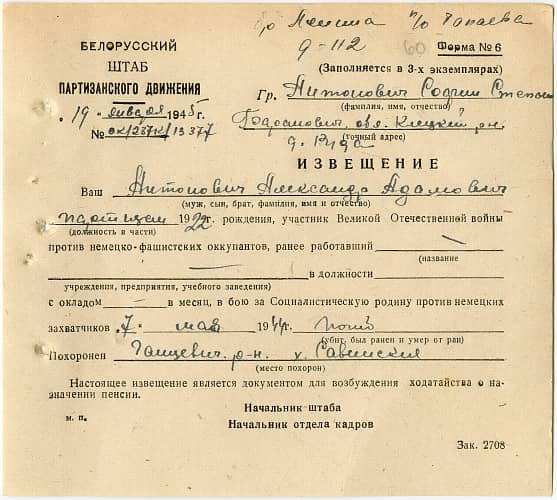 п/о
9-112 60 Форма № 6
БЕЛОРУССКИЙ
ШТАБ
ПАРТИЗАНСКОГО ДВИЖЕНИЯ
„19 января 1945 г.
№ 13377
(Заполняется в 3-х экземплярах)
Гр. Антонович Софии
(фамилия, имя, отчество)
обл. Клецкий р-н.
(точный адрес)
д. Руда
ИЗВЕЩЕНИЕ
Ваш Антонович Александр Адамович
(муж, сын, брат, фамилия, имя и отчество)
1922 г. рождения, участник Великой Отечественной войны
(должность в части)
против немецко-фашистских оккупантов, ранее работавший —
(название
— в должности
учреждения, предприятия, учебного заведения)
с окладом — в месяц, в бою за Социалистическую родину против немецких
захватчиков „7" мая 1944г. погиб
(убит, был ранен и умер от ран)
Похоронен Ганцевич. р-н. х.
(место похорон)
Настоящее извещение является документом для возбуждения ходатайства о на-
значении пенсии.
Начальник штаба
м. п.
Начальник отдела кадров
Зак. 2708